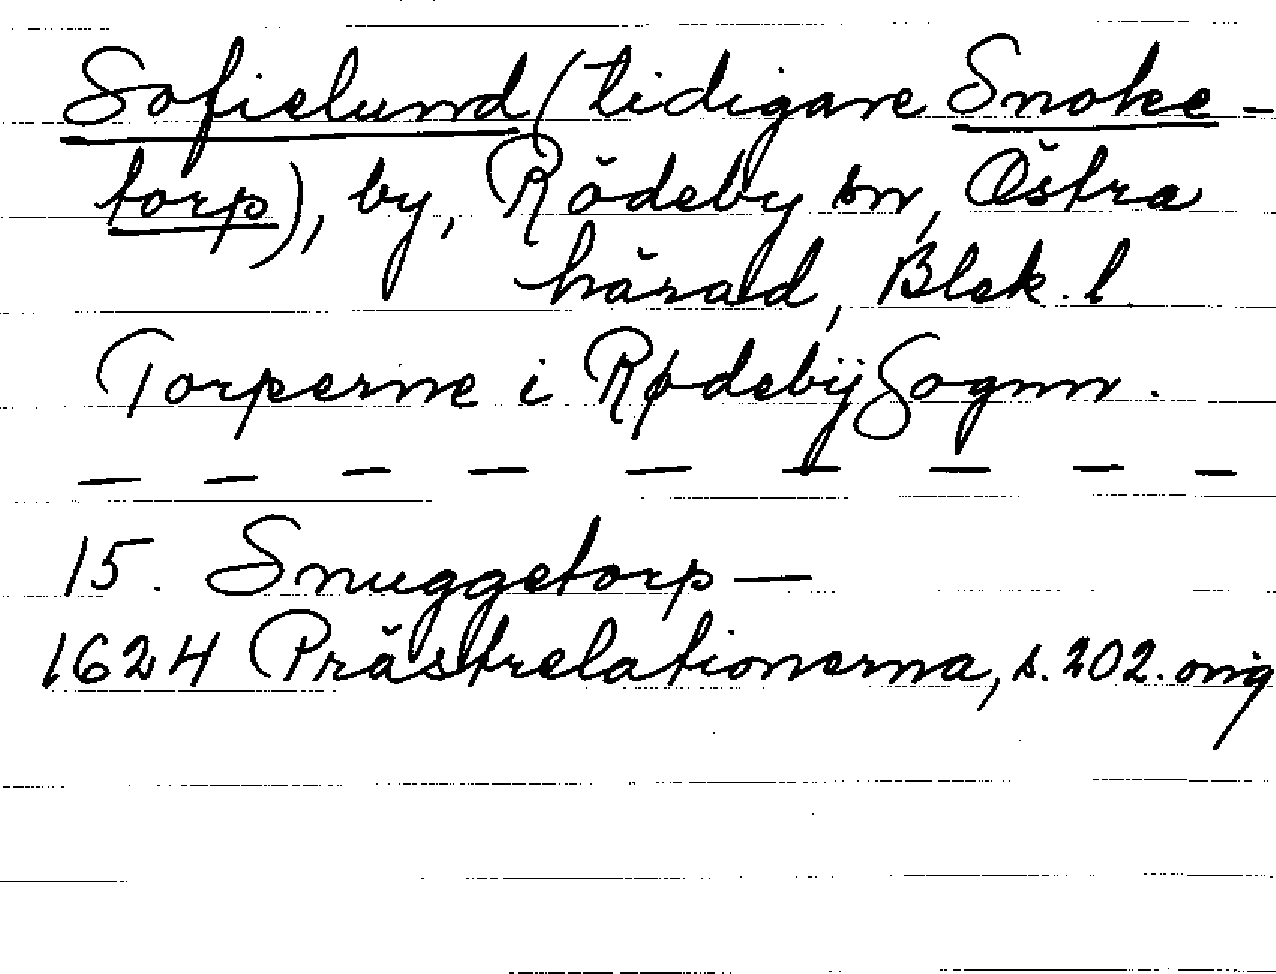 Sofielund (tidigare Snoke-
torp), by, Rödeby sn, Östra
härad, Blek. l.
Torperne i RødebijSognn.
— — — — — — — — —
15. Snuggetorp —
1624 Prästrelationerna, s. 202. orig